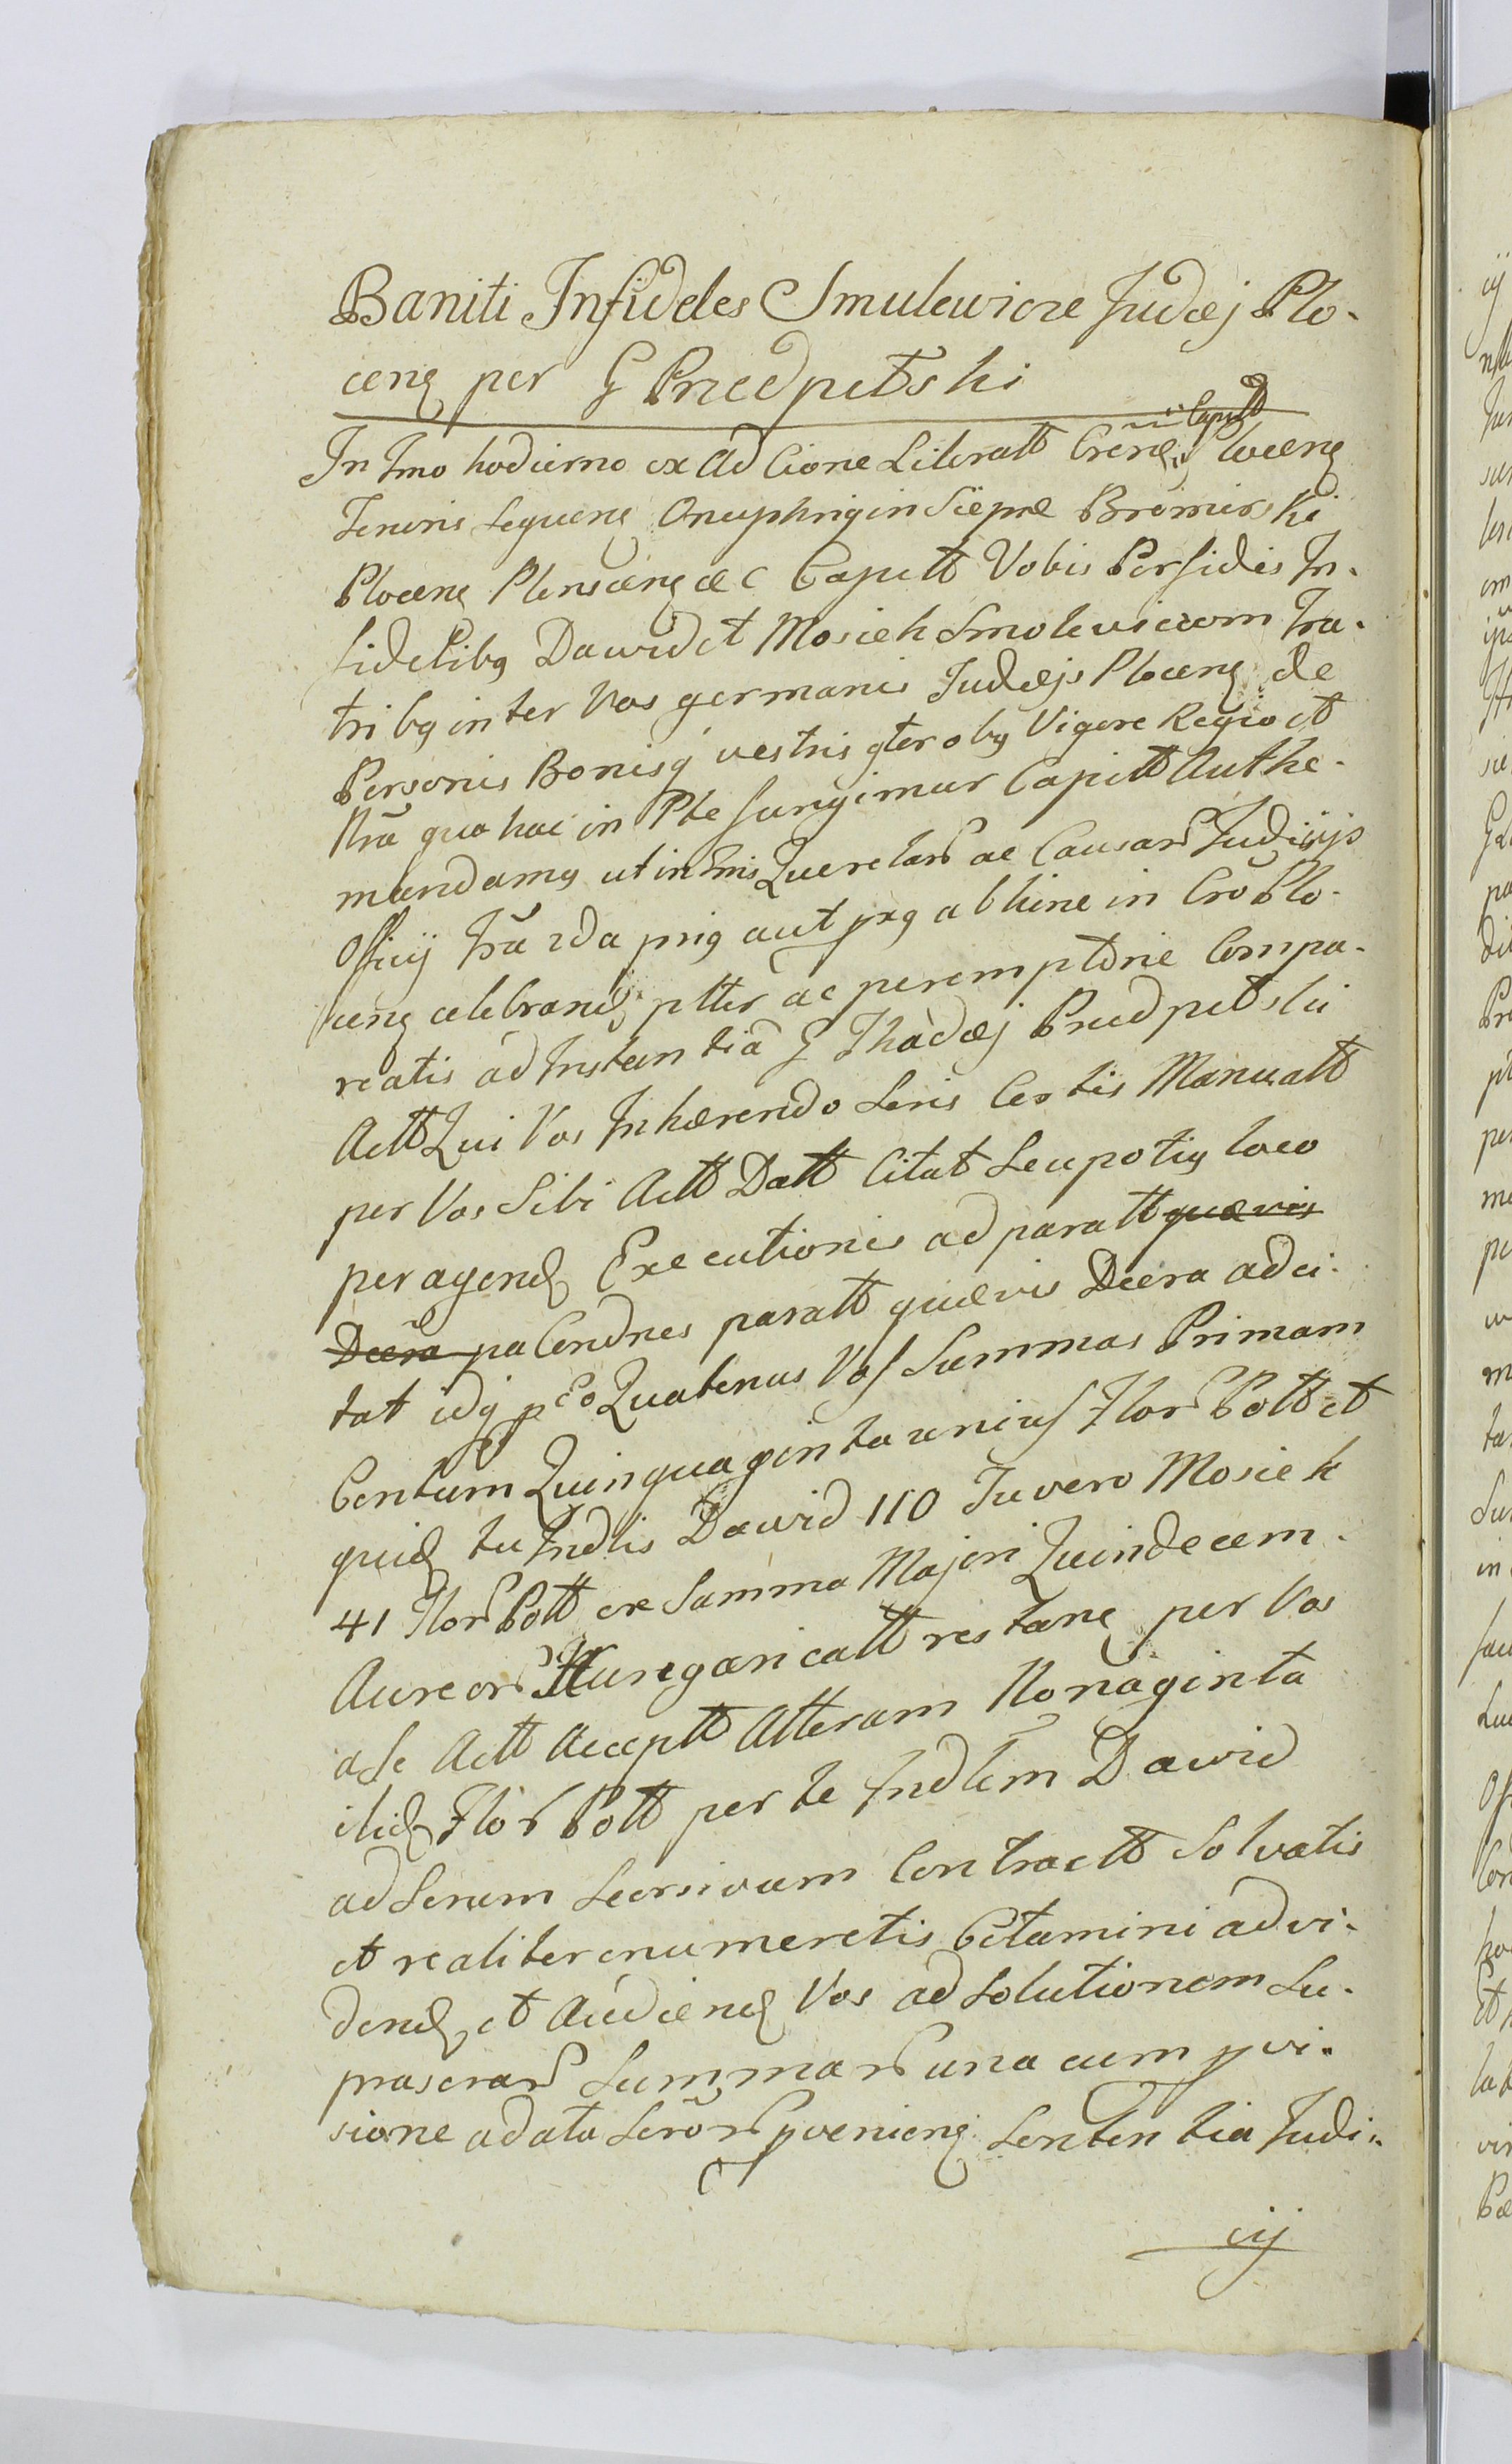 Baniti Infideles Smulewicze Judæj Plo-
cenꝫ per G Przedpełski
In Tmo hodierno ex Ad Cione Literatt Crēnꝫ Capitt Plocenꝫ
Tenoris Sequenꝫ Onuphrig in Siepræ Bromirski
Plocenꝫ Plonscenꝫ æc Capitt Vobis Perfidis In-
fidelibꝫ Dawid et Mosiek Smolewiczom Fra-
tribꝫ inter Vos germanis Judæjs Plocenꝫ de
Personis Bonisq vestris gterobꝫ Vigore Regio et
Nrā qua hac in Pte fungimur Capitt Autthe-
mandamꝫ ut in Tmis Querelarꝫ ac Causarꝫ Judicijs
Officij Nrā 2da prig aut pxg abhinc in Crō Plo-
cenꝫ celebranꝫ ptter ac peremptorie Compa-
reatis ad Instantiā G Thadæj Przedpełski
Actt Qui Vos Inhærendo Seris Certis Manualt
per Vos Sibi Actt Datt Citat Seu potiꝫ loco
peragenꝫ Executionis ad paratt quævis
Decra pa Cendnes paratt quævis Decra adci-
tat idq pEo Quatenus Vos Summas Primam
Centum Quinquaginta unius Florꝫ Poltt et
quidꝫ tu Indlis Dawid 110 Tu vero Mosiek
41 Florꝫ Poltt ex Summa Majori Quindecem
Aureorꝫ Hungaricatt restanꝫ per Vos
a Se Actt Acceptt Alteram Nonaginta
itidꝫ Florꝫ Poltt per te Indlem Dawid
ad Serum Seorsivum Contractt Solvatis
et realiter enumeretis Citamini ad vi-
denꝫ et Audienꝫ Vos ad Solutionem Su-
prascrarꝫ Summarꝫ una cum pvi-
sione adata Serōrꝫ pvenienꝫ Sententia Judi-
cij